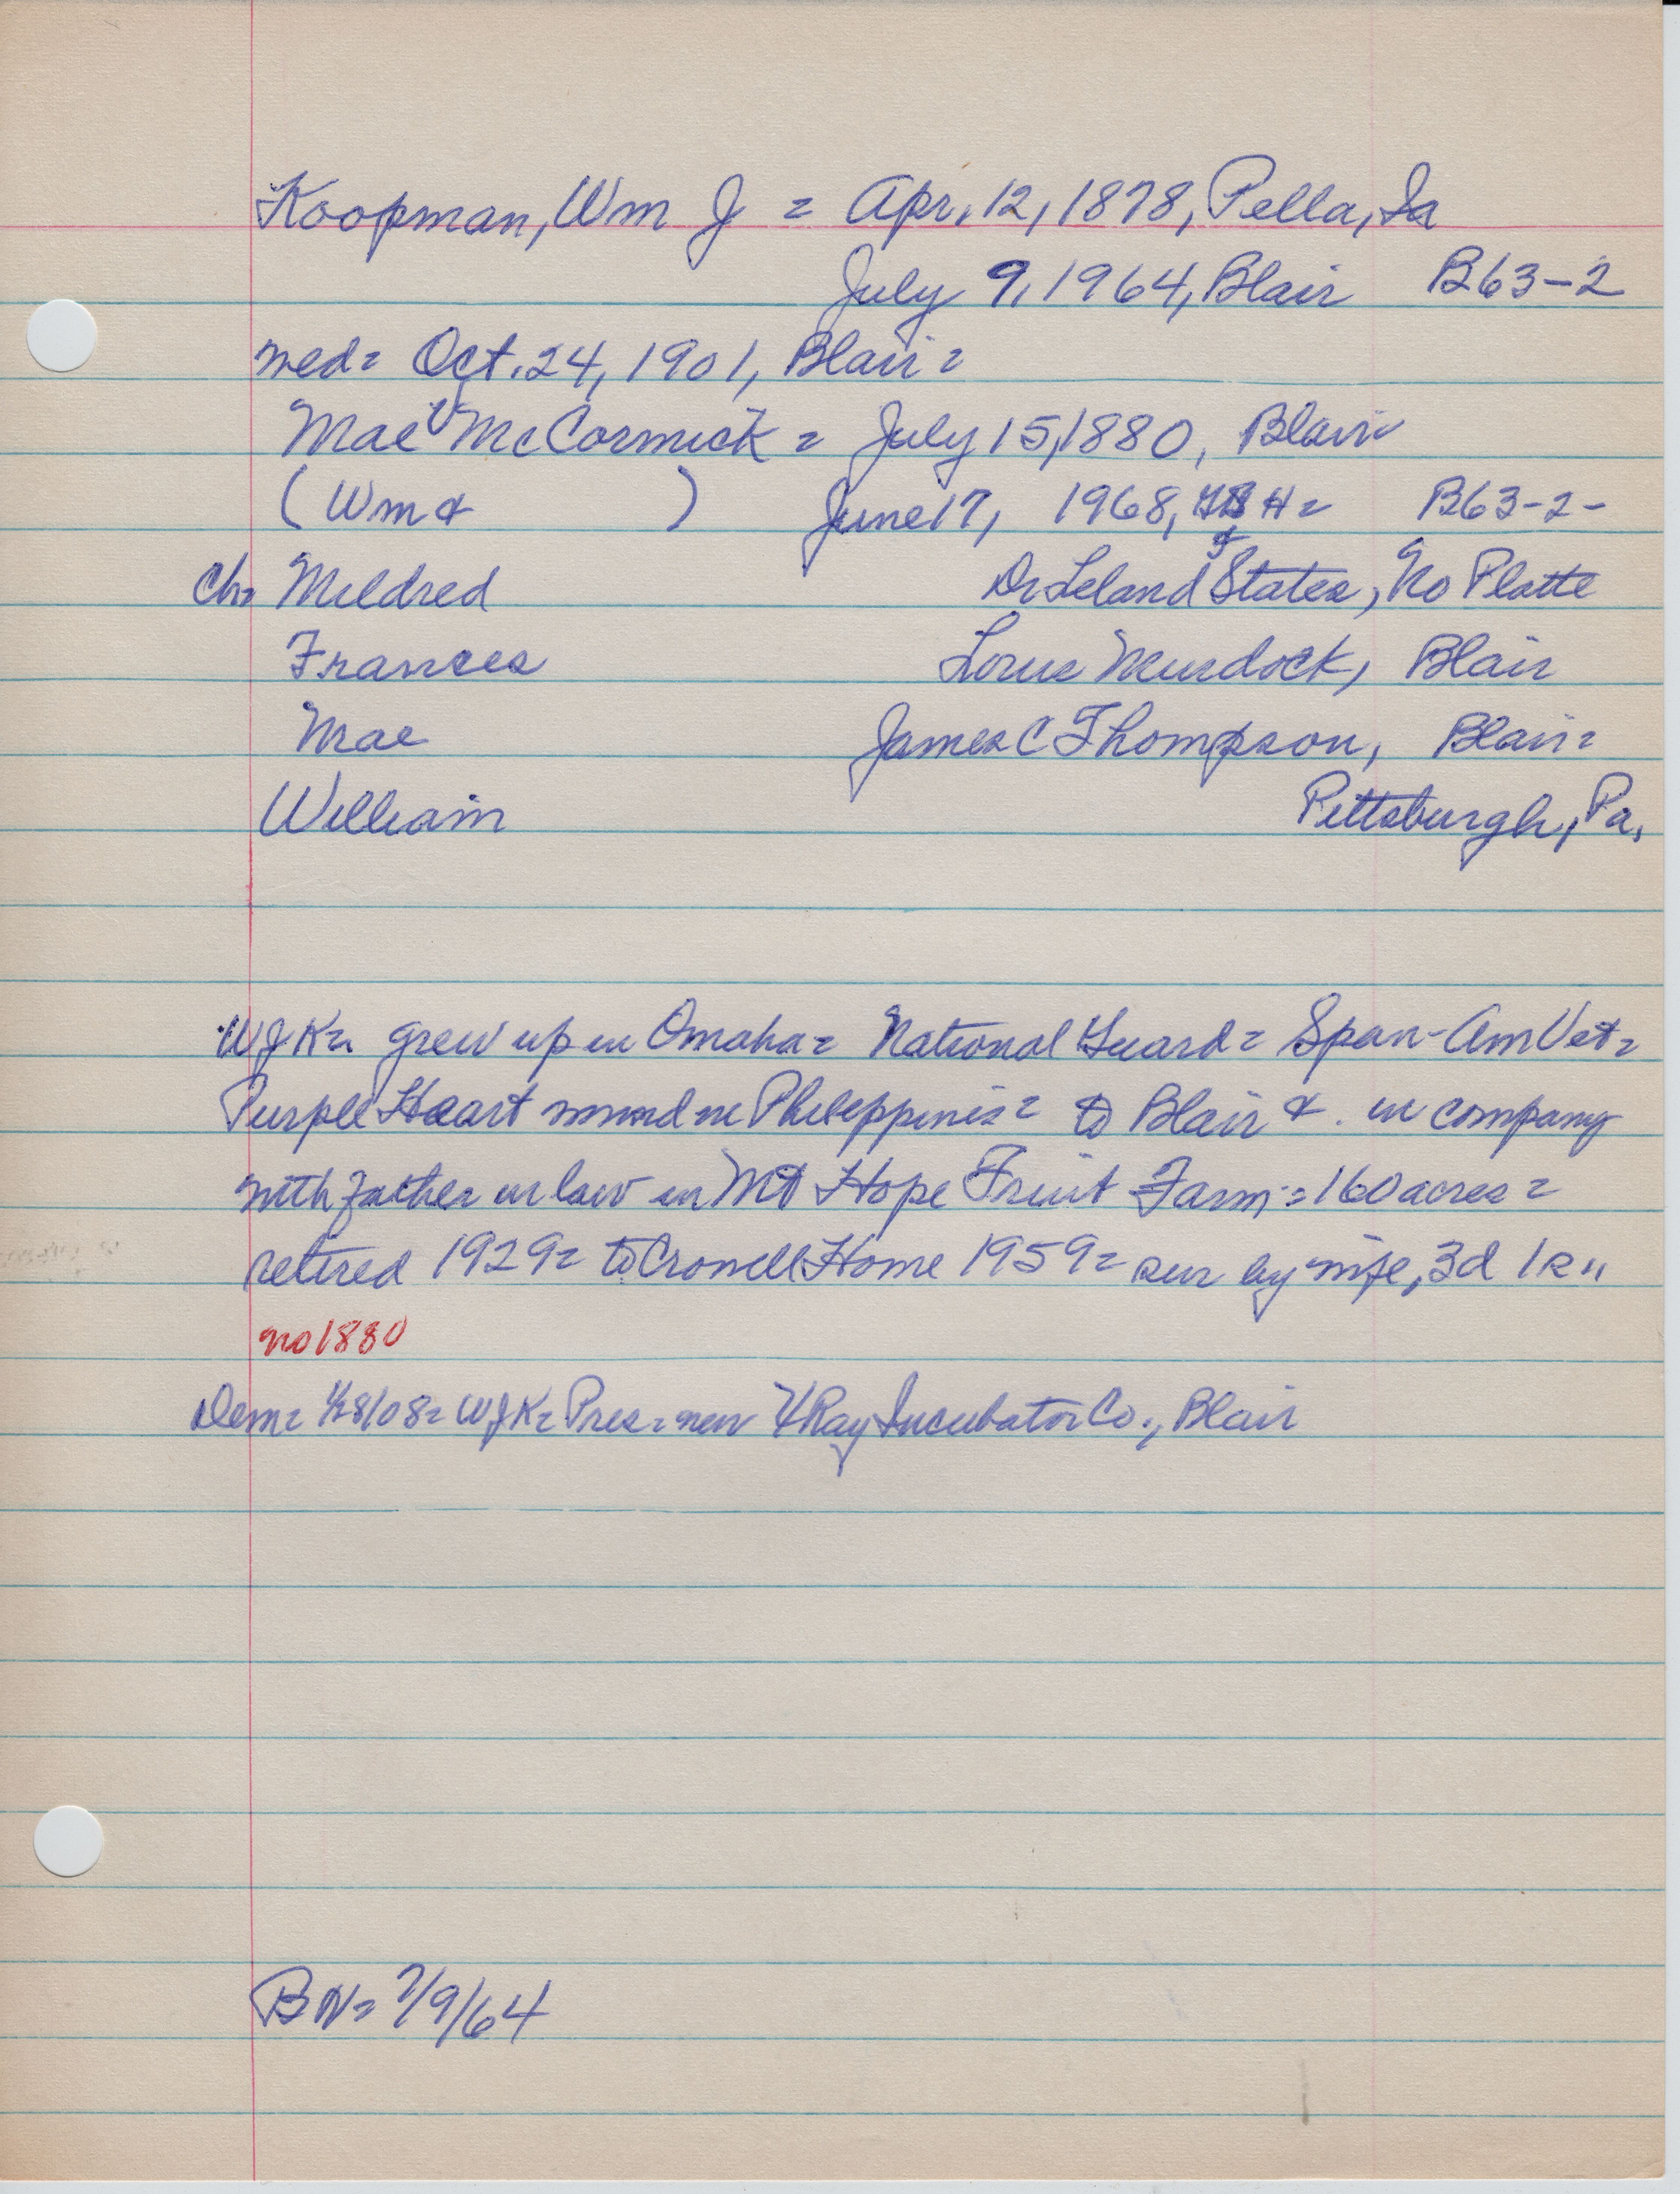 Koopman, Wm J = Apr. 12, 1878, Pella, Ia
July 9, 1964, Blair B63-2
wed= Oct. 24, 1901, Blair=
Mae V McCormick = July 15, 1880, Blair
(Wm & ) June 17, 1968, H= B63-2-
Ch= Mildred Dr Leland J States, No Platte
Frances Murdock, Blair
Mae James C Thompson, Blair=
William Pittsburgh, Pa.
WJK= grew up in Omaha= National Guard= Span-Am Vet=
Purple Heart in Philippines= to Blair & in company
with father in law in Mt Hope Fruit Farm= 160 acres=
retired 1929= to Crowell Home 1959= sur by wife, 3d 1s
no 1880
Dem= WJK= Pres= new X Ray Incubator Co., Blair
BN= 7/9/64